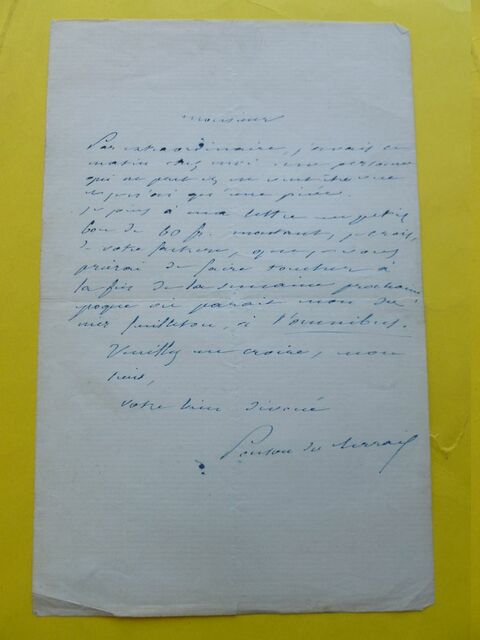 monsieur
Par extraordinaire, j'avais ce
matin chez moi une personne
qui ne peut
et je n'ai qu'une pièce.
je joins à ma lettre un petit
bon de 60 fr. montant, je crois,
de votre facture, que je vous
prierai de faire toucher à
la fin de la semaine prochaine
époque où paraît mon der
nier feuilleton, à l'omnibus.
Veuillez me croire, mon
sieur,
votre bien dévoué
Ponson du Terrail